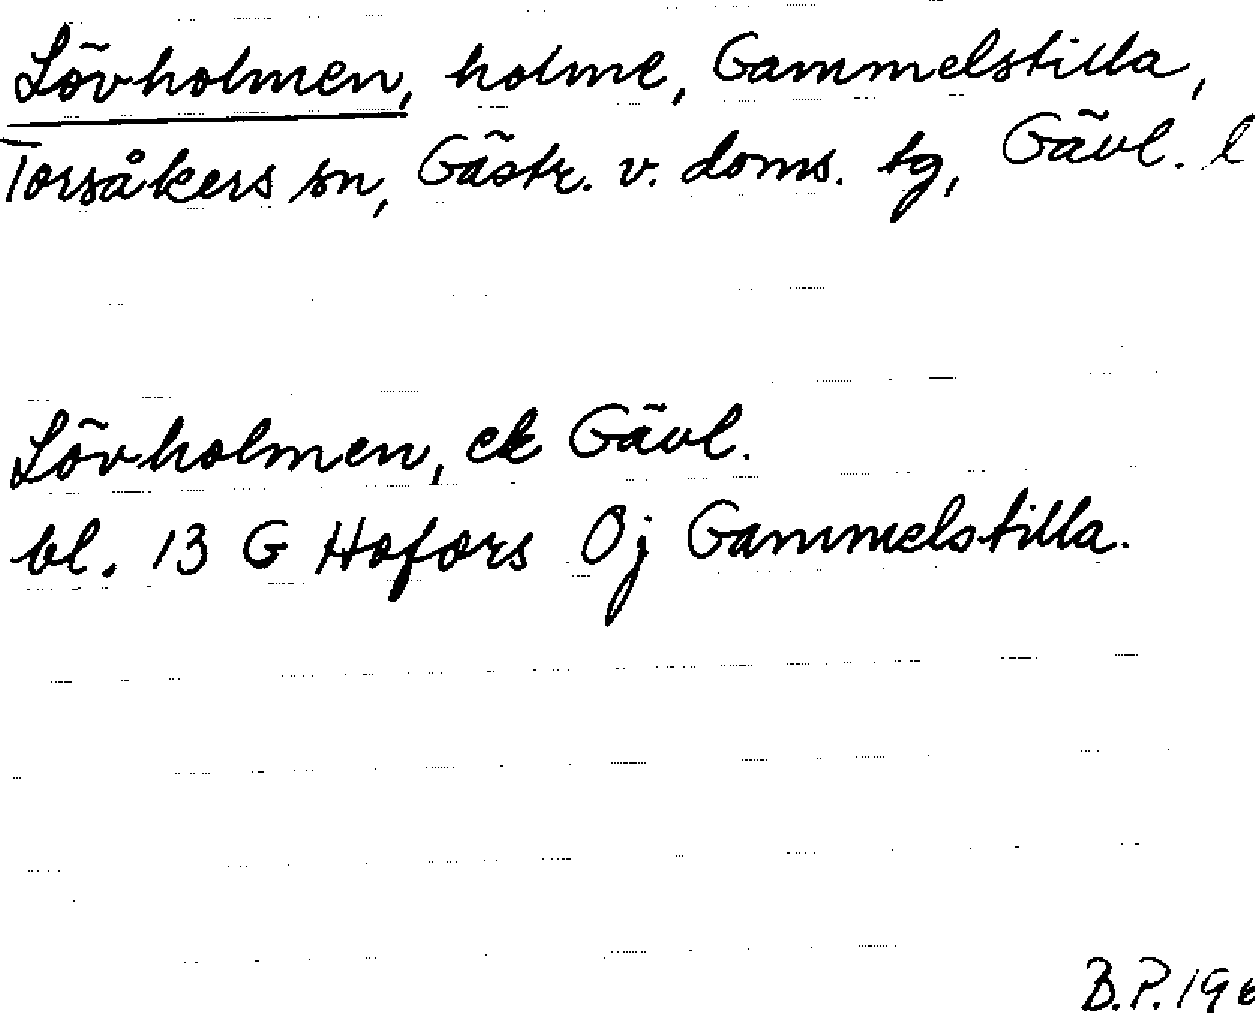 Lövholmen, holme, Gammelstilla,
Torsåkers sn, Gästr. v. doms. tg, Gävl. l
Lövholmen, ek Gävl.
bl. 13 G Hofors 0j Gammelstilla.
B.P. 196